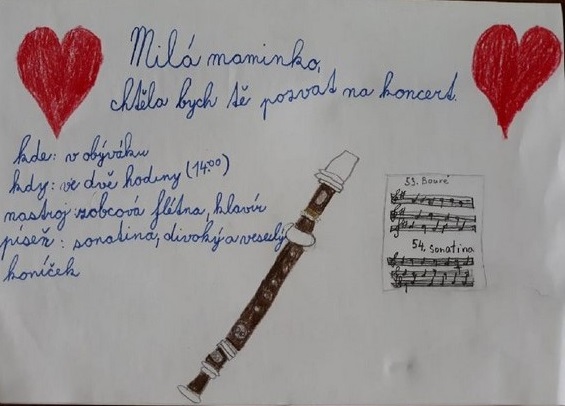 Milá maminko,
chtěla bych tě pozvat na koncert.
kde: v obýváku
kdy: ve dvě hodiny (14:00)
nastroj zobcová flétna, klavír
píseň: sonatina, divoký a veselý
koníček
53. Boureé
54. Sonatina